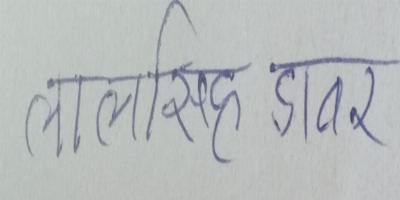 लालसिंह डावर